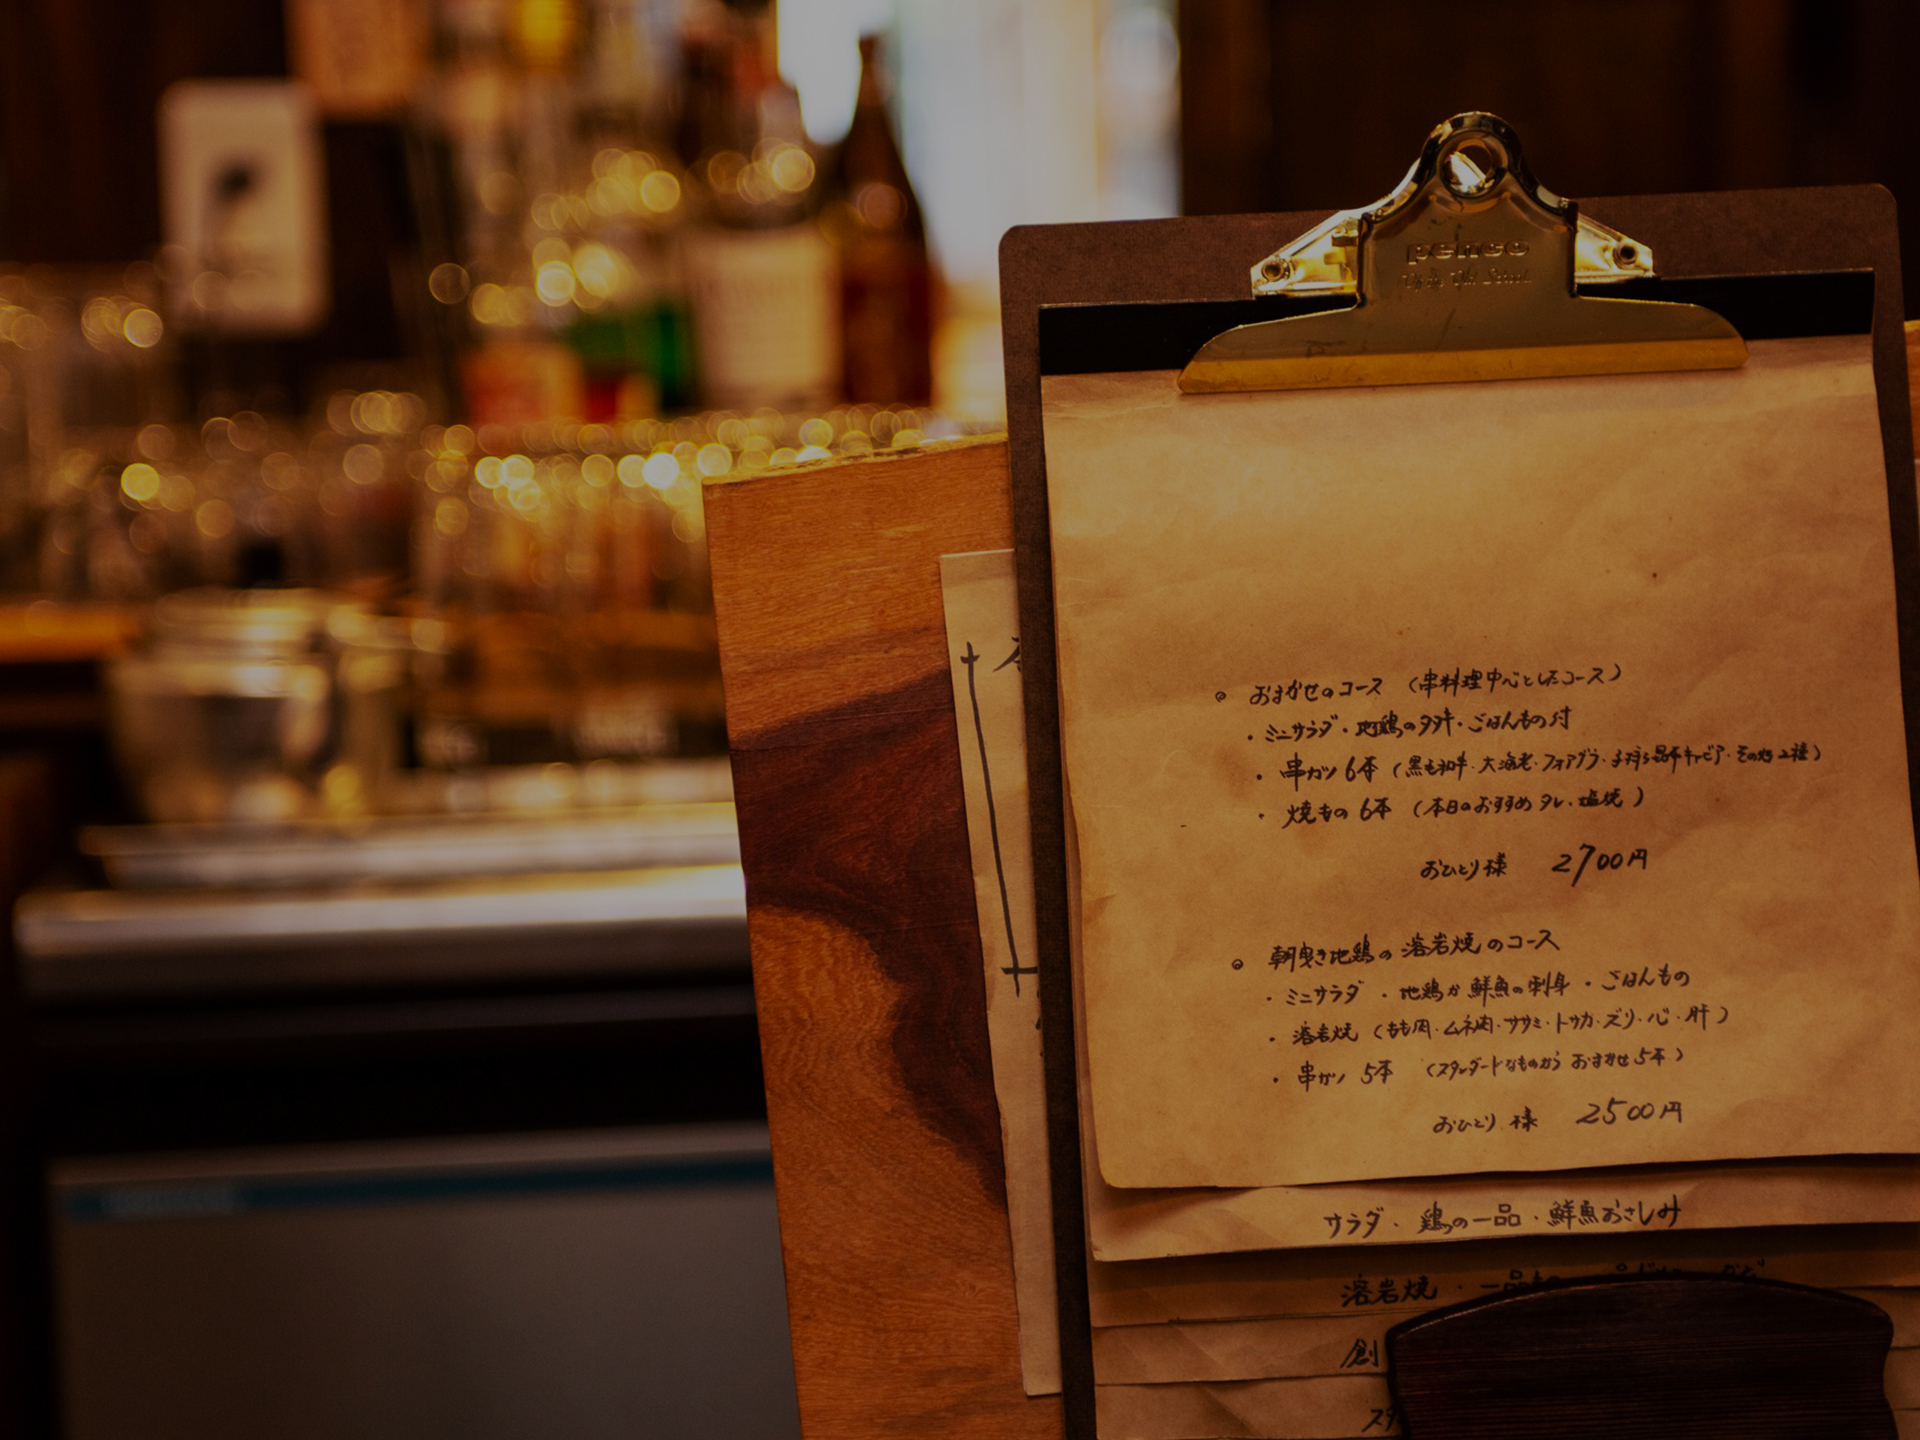 penco
◎ おまかせのコース （串料理中心としたコース）
・ミニサラダ・地鶏のタタキ・ごはんもの付
・串カツ 6本 （黒毛和牛・大海老・フォアグラ・キャビア・その他2種）
・焼もの 6本 （本日のおすすめ タレ・塩焼）
おひとり様 2700円
◎ 朝曳き地鶏の溶岩焼のコース
・ミニサラダ ・地鶏か鮮魚の刺身 ・ごはんもの
・溶岩焼 （もも肉・ムネ肉・ササミ・トサカ・ズリ・心・肝）
・串カツ 5本 （スタンダードなものから おまかせ5本）
おひとり様 2500円
サラダ・鶏の一品・鮮魚おさしみ
溶岩焼・一品
創
スタ